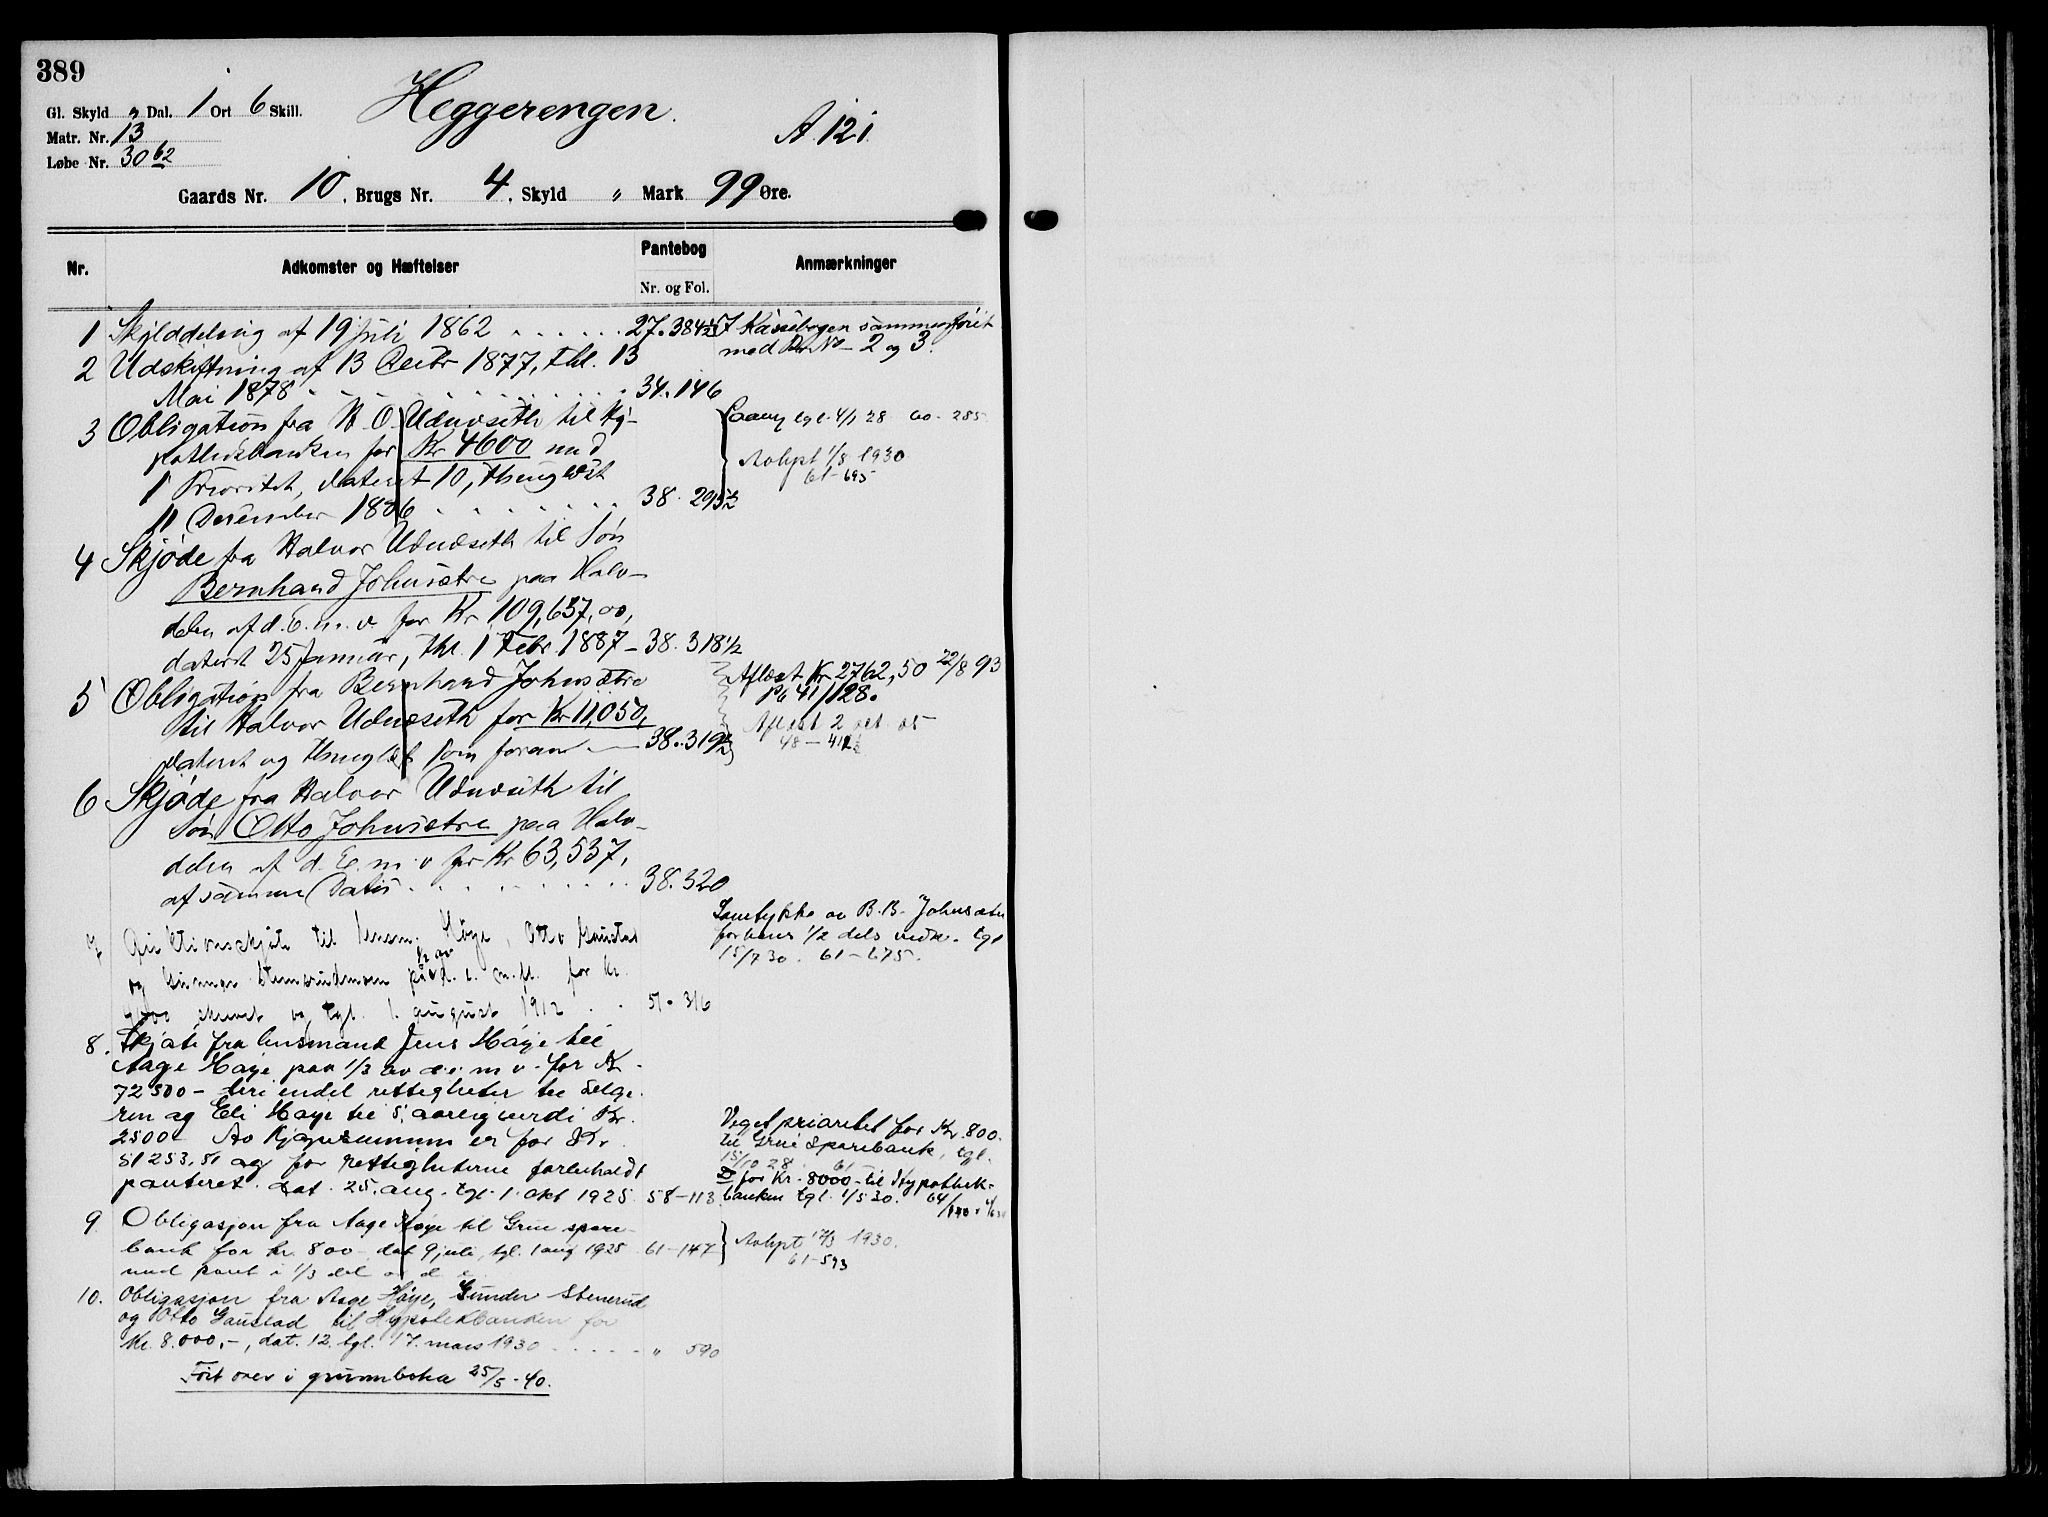 389
Gl. Skyld " Dal. 1 Ort 6 Skill.
Heggerengen.
A. 121
Matr. Nr. 13
Løbe Nr. 30 b2
Gaards Nr. 10. Brugs Nr. 4. Skyld " Mark 99 Øre.
Nr.
Adkomster og Hæftelser
Pantebog
Nr. og Fol.
Anmærkninger
1 Skylddeling af 19 Juli 1862 . . . . . . 27. 384½
I Kassebogen sammenføiet
med Br. No 2 og 3.
2 Udskiftning af 13 Decbr 1877, thl. 13
Mai 1878 . . . . . . . . . . 34. 146
3 Obligation fra H. O. Udnæseth til Hy-
pothekbanken for Kr 4600 med
1 Prioritet, dateret 10, thinglæst
11 December 1886 . . . . . . . . 38. 293½
tgl. 4/1 28 60. 285.
Avlyst 1/8 1930
61-695
4 Skjøde fra Halvor Udnæseth til Søn
Bernhand Johnsætre paa Halv-
delen af d. E. m. v. for Kr 109,637,00,
dateret 25 Januar, thl. 1 Febr. 1887 - 38. 318½
5 Obligation fra Bernhand Johnsætre
til Halvor Udnæseth for Kr 11,050,
dateret og thinglæst som foran - 38. 319½
Aflæst Kr 2762,50 22/8 93
Pb 41/128.
Aflæst 2 05
48-412½
6 Skjøde fra Halvor Udnæseth til
Søn Otto Johnsætre paa Halv-
delen af d. E. m. v for Kr 63,537,
af samme Datis . . . . . . . . . 38. 320
Samtykke av B. B. Johnsæter
for hans 1/2 dels vedk. tgl
15/7 30. 61-675.
7 Auktionsskjøte til Høye, Otto Gaustad
og Gunnar d. e. m. fl. for kr.
og tgl. 1. august 1912 . . 51. 316
8. Skjøte fra husmand Jens Høye til
Aage Høye paa 1/3 av d. e. m v. for Kr.
72500 - deri endel rettigheter til selge-
ren og Eli Høye til 5 aarlig verdi Kr.
2500 - Av kjøpesummen er for Kr.
51253,51 og for rettigheterne forbeholdt
panteret. dat. 25. aug. tgl. 1. okt 1925 58-113.
Veget prioritet for Kr. 800.
til Grue Sparebank, tgl.
15/10 28. 61
for Kr. 8000 - til Hypothek-
banken tgl. 1/5 30. 64/
9. Obligasjon fra Aage Høye til Grue spare-
bank for kr. 800 - dat 9 juli, tgl. 1 aug 1925 61-147
med pant i 1/3 del av d. e.
Avlyst 17/3 1930.
61-593
10. Obligasjon fra Aage Høye, Gunder Stenerud
og Otto Gaustad til Hypotekbanken for
Kr. 8.000,-, dat. 12. tgl. 17. mars 1930 . . . . . " 590
Ført over i grunnboka 25/5-40.